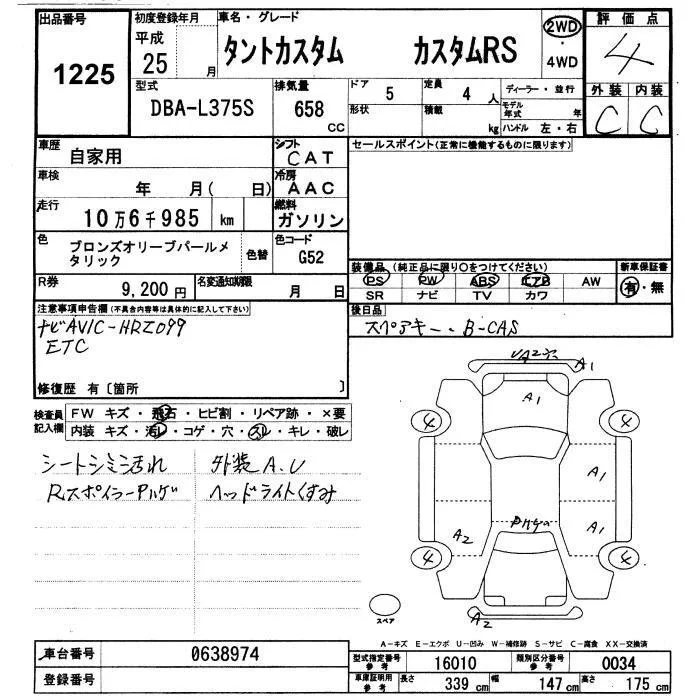 出品番号 初度登録年月 車名・グレード 2WD 評価点
1225 平成 25 月 タントカスタム カスタムRS ・ 4WD 4
型式 排気量 ドア 5 定員 4 人 ディーラー・並行 外装 内装
DBA-L375S 658 CC 形状 積載 kg モデル年式 年 C C
ハンドル 左・右
車歴 自家用 シフト CAT セールスポイント(正常に機能するものに限ります)
車検 年 月( 日) 冷房 AAC
走行 10万6千985 km 燃料 ガソリン
色 ブロンズオリーブパールメタリック 色替 色コード G52
装備品 (純正品に限り○をつけてください) 新車保証書
PS PW ABS エアB AW 有・無
SR ナビ TV カワ
R券 9,200円 名変通知期限 月 日
後日品
スペアキー・B-CAS
注意事項申告欄(不具合内容等は具体的に記入して下さい)
ナビAVIC-HRZ099
ETC
修復歴 有〔箇所 〕
検査員記入欄 FW キズ・飛石・ヒビ割・リペア跡・×要
内装 キズ・汚レ・コゲ・穴・スレ・キレ・破レ
シートシミ汚れ 外装A.U
Rスポイラーハゲ ヘッドライトくすみ
A1
A1
4 4
A1
A1
A2
4 4
A2
スペア
A-キズ E-エクボ U-凹み W-補修跡 S-サビ C-腐食 XX-交換済
車台番号 0638974 型式指定番号 参考 16010 類別区分番号 参考 0034
登録番号 車庫証明用 参考 長さ 339 cm 幅 147 cm 高さ 175 cm